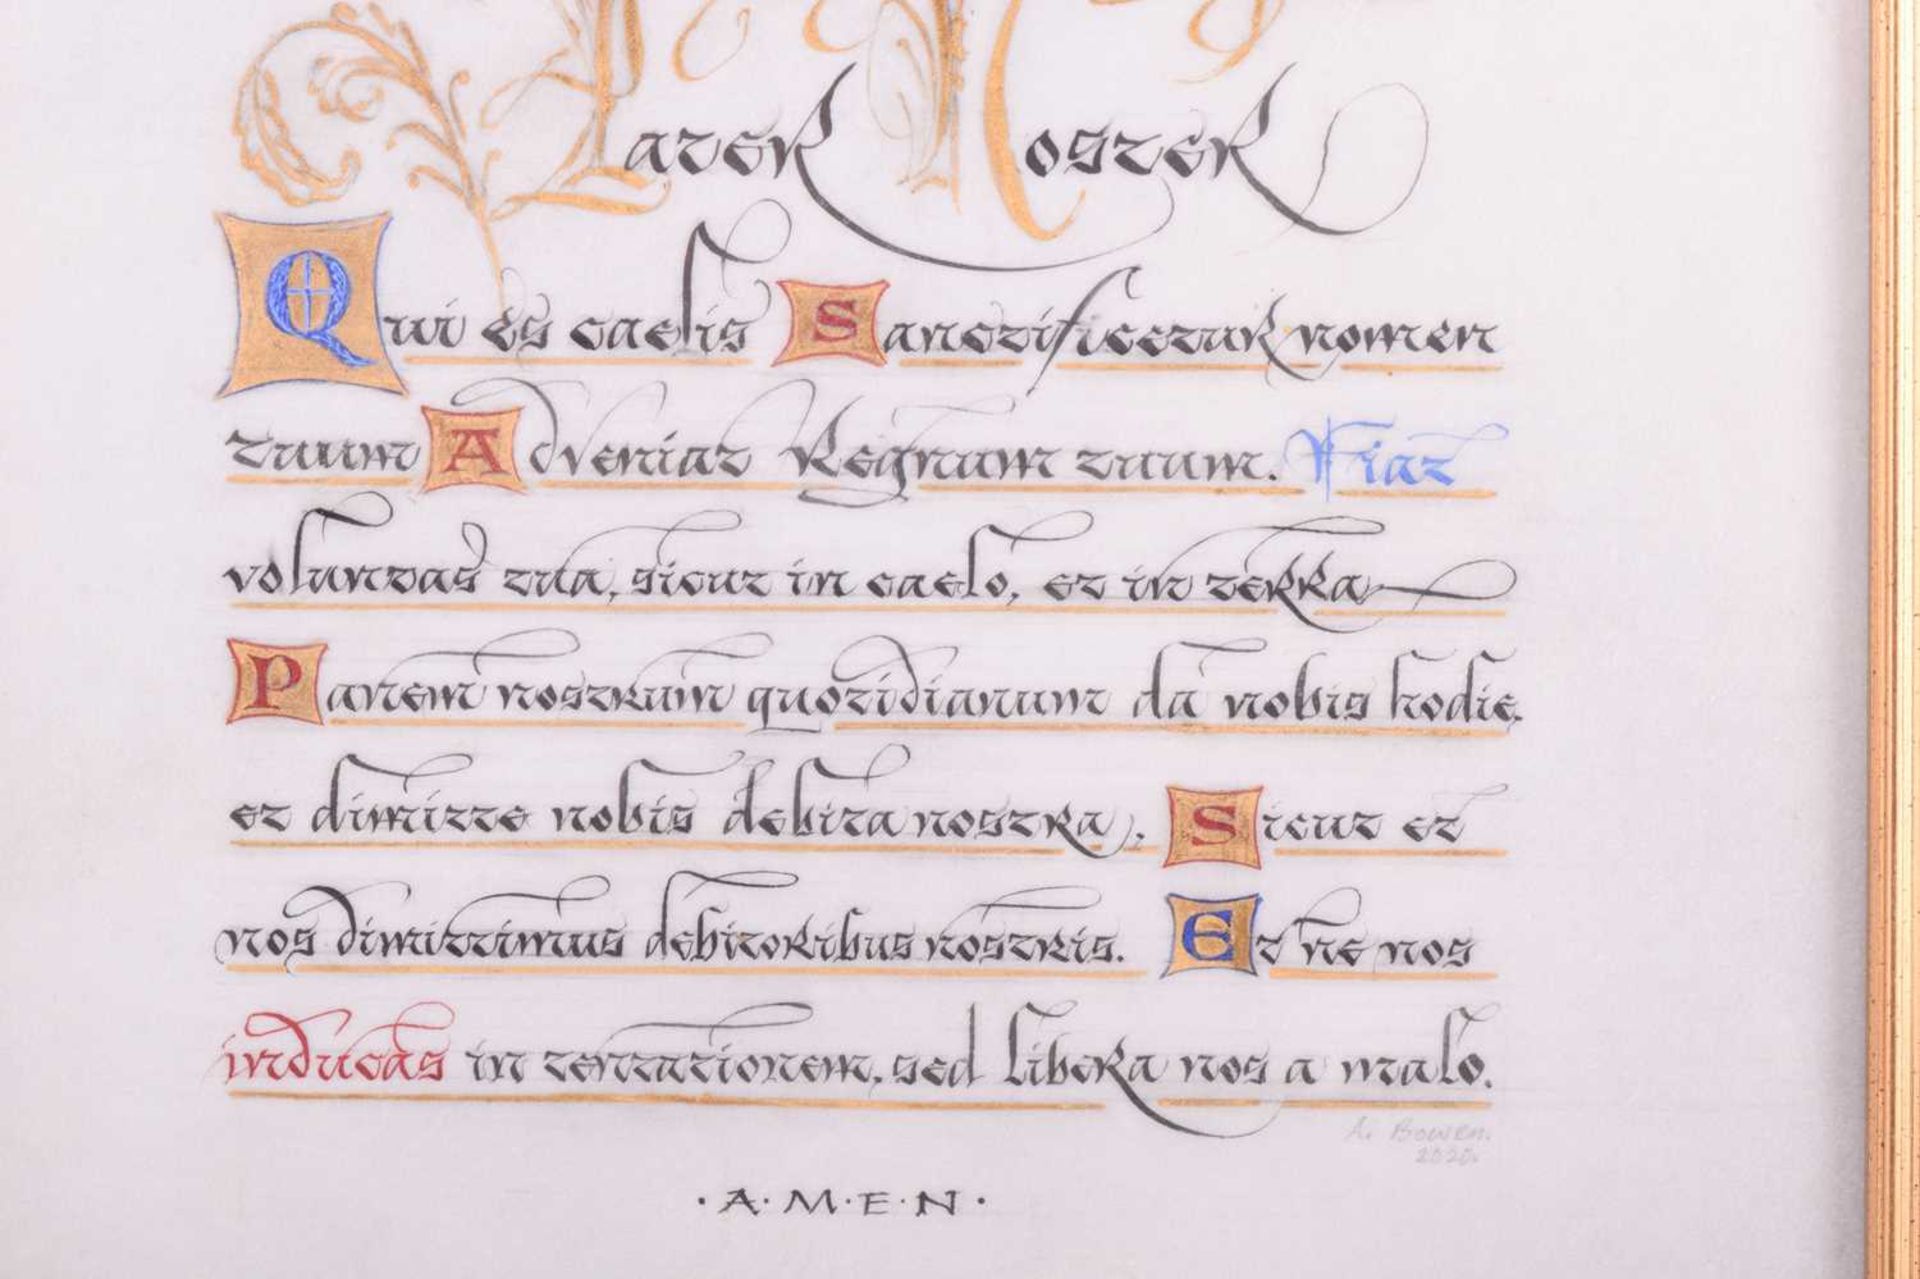 Pater Noster
Qui es caelis Sanctificetur nomen
tuum Adveniat Regnum tuum. Fiat
voluntas tua, sicut in caelo, et in terra
Panem nostrum quotidianum da nobis hodie.
et dimitte nobis debita nostra; Sicut et
nos dimittimus debitoribus nostris. Et ne nos
inducas in tentationem, sed libera nos a malo.
A. Bowen.
2020.
·A·M·E·N·